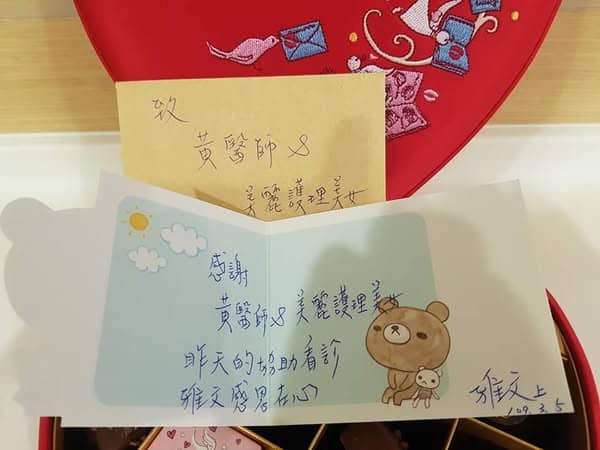 致
黃醫師 &
美麗護理美女
感謝
黃醫師 & 美麗護理美女
昨天的協助看診
雅文感恩在心
雅文上
109.3.5